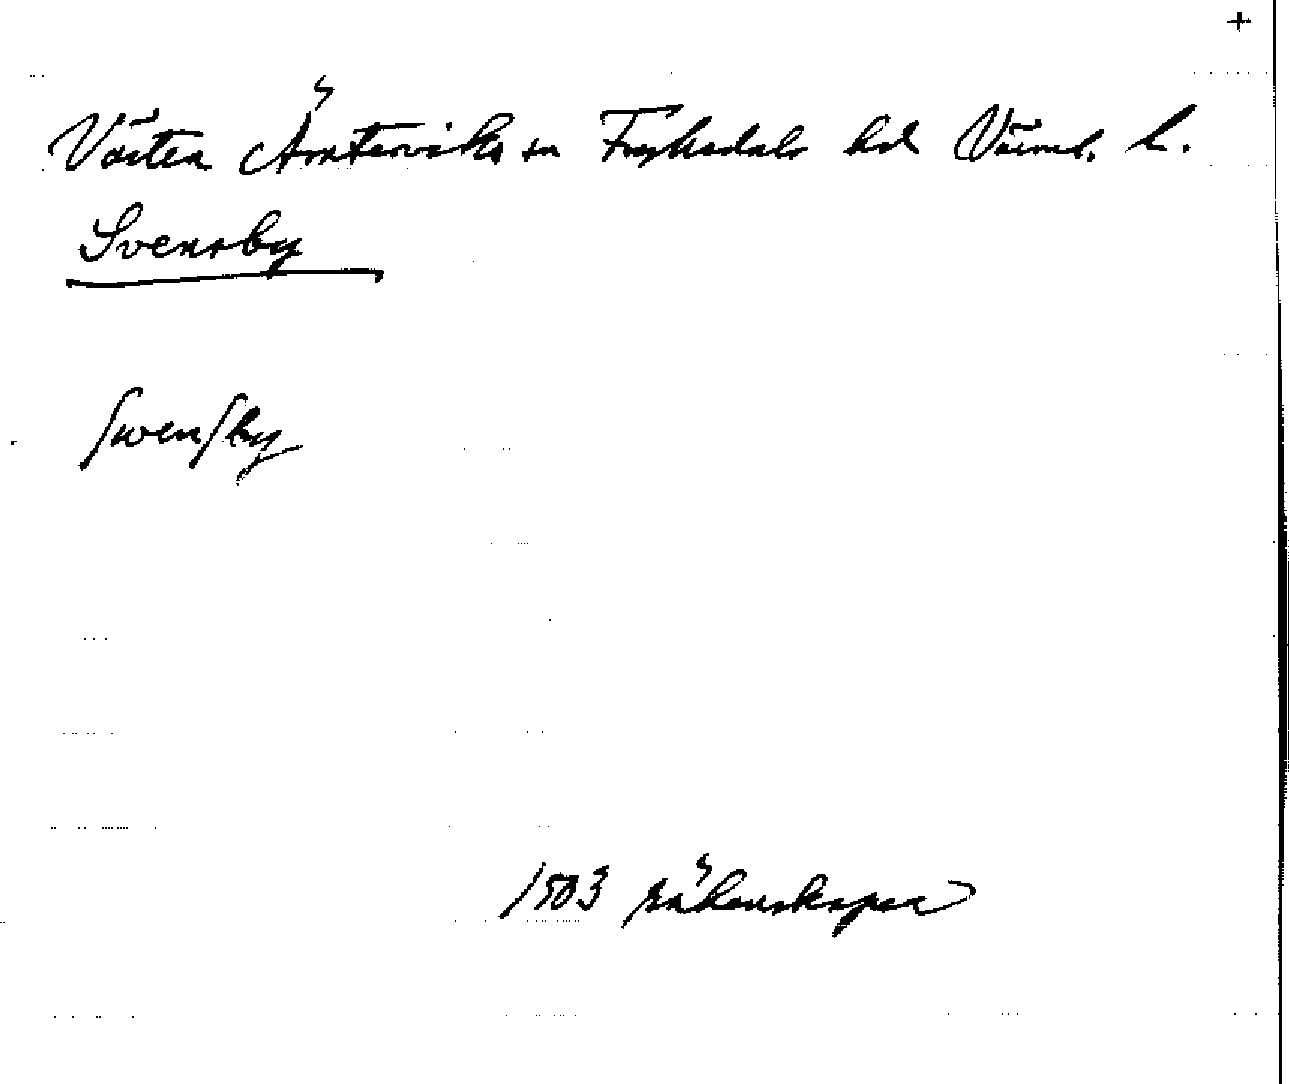 +
Västra Ämterviks sn Fryksdals hd Värml. l.
Svensby
Swensby
1503 räkenskaper